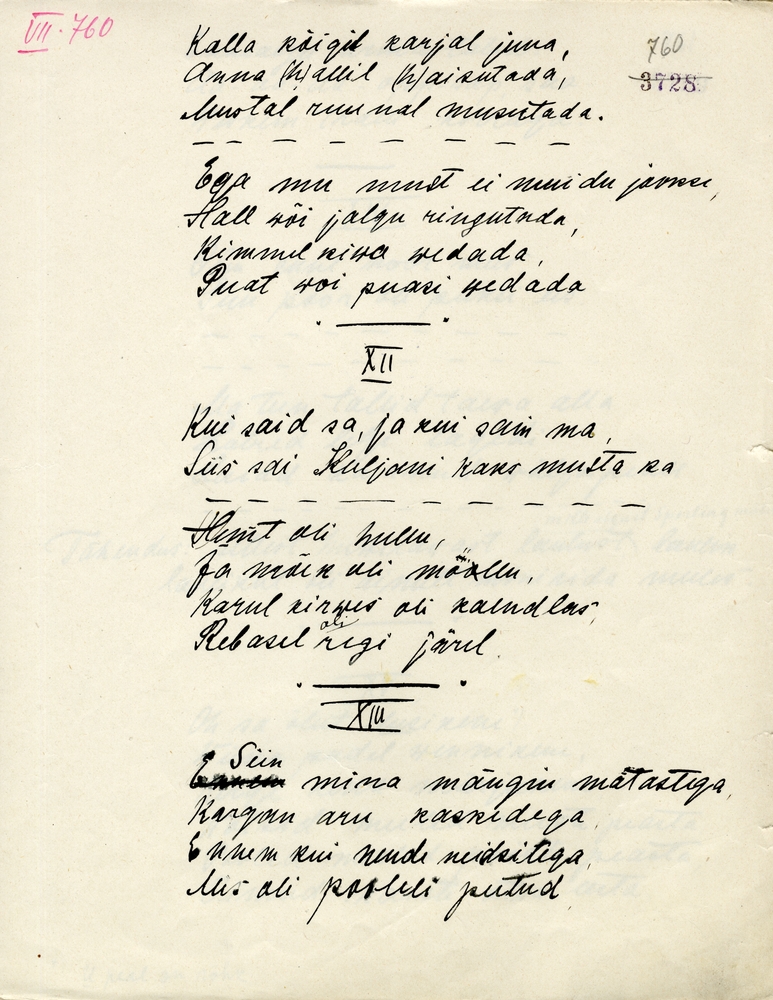 VII. 760
760
3728.
Kalla kõigil karjal juua,
Anna (h)allil (h)aisutada,
Mustal ruunal musutada.
Ega mu must ei muidu jookse,
Hall wõi jalgu ringutada,
Kimmel kiwa wedada,
Puat woi puasi wedada
XII
Kui said sa, ja kui sain ma,
Siis sai Kuljani kaks musta ka
Hunt oli hullu,
Ja mõek oli möollu,
Karul kirwes oli kaendlas,
Rebasel oli regi järel.
XIII
Siin mina mängin mätastega,
Kargan aru kaskedega
Ennem kui nende neidsitega,
Mis oli pooleli peetud